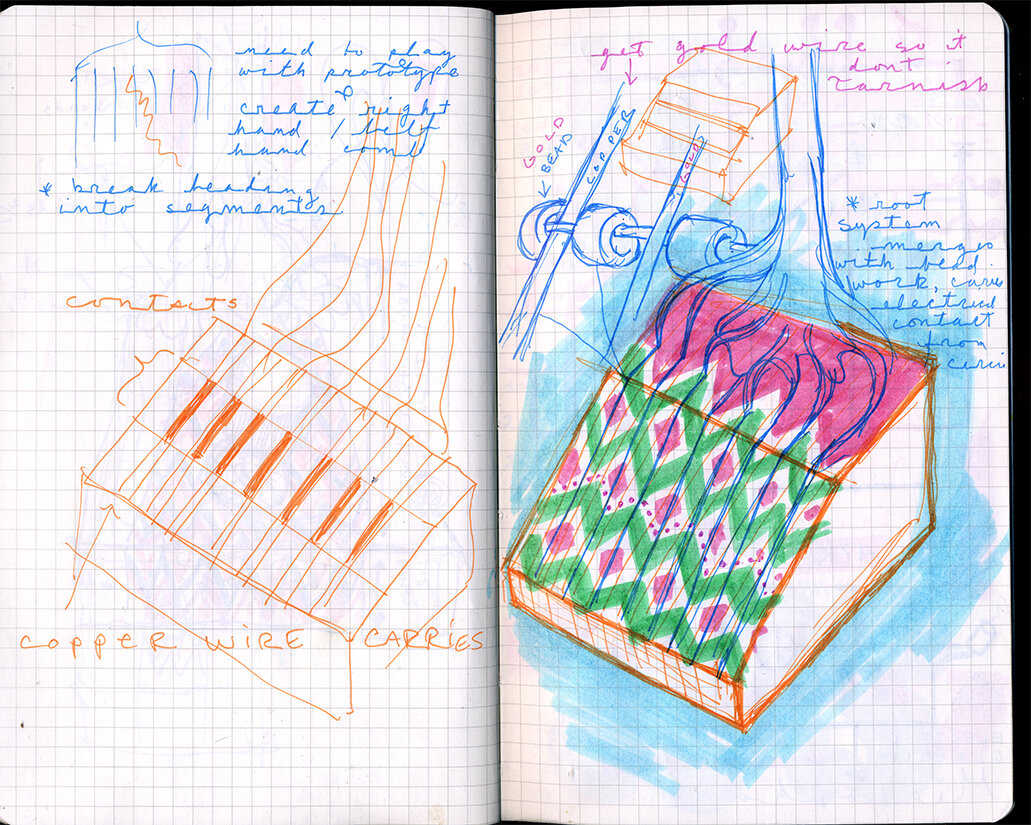 need to play
with prototype
&
create right
hand / left
hand comb
* break beading
into segments
contacts
COPPER WIRE CARRIES
get gold wire so it
dont
tarnish
GOLD
BEAD
COPPER
GOLD
* root
system
merges
with bead
work, caries
electrical
contact
from